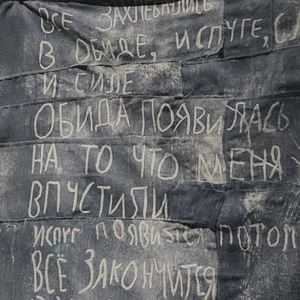 ВСЕ ЗАХЛЕБНУЛИСЬ
В ОБИДЕ, ИСПУГЕ, С
И СИЛЕ
ОБИДА ПОЯВИЛАСЬ
НА ТО ЧТО МЕНЯ
ВПУСТИЛИ
ИСПУГ ПОЯВИЛСЯ ПОТОМ
ВСЁ ЗАКОНЧИТСЯ